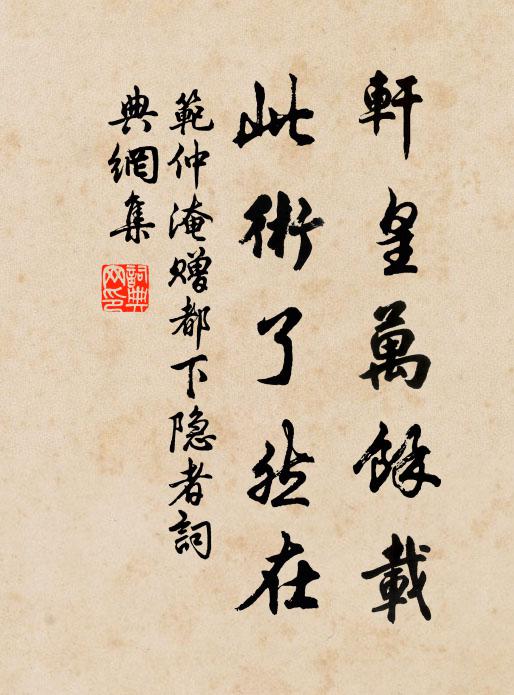 軒皇萬餘載
此術了然在
範仲淹赠都下隐者詞
典網集
詞典网印